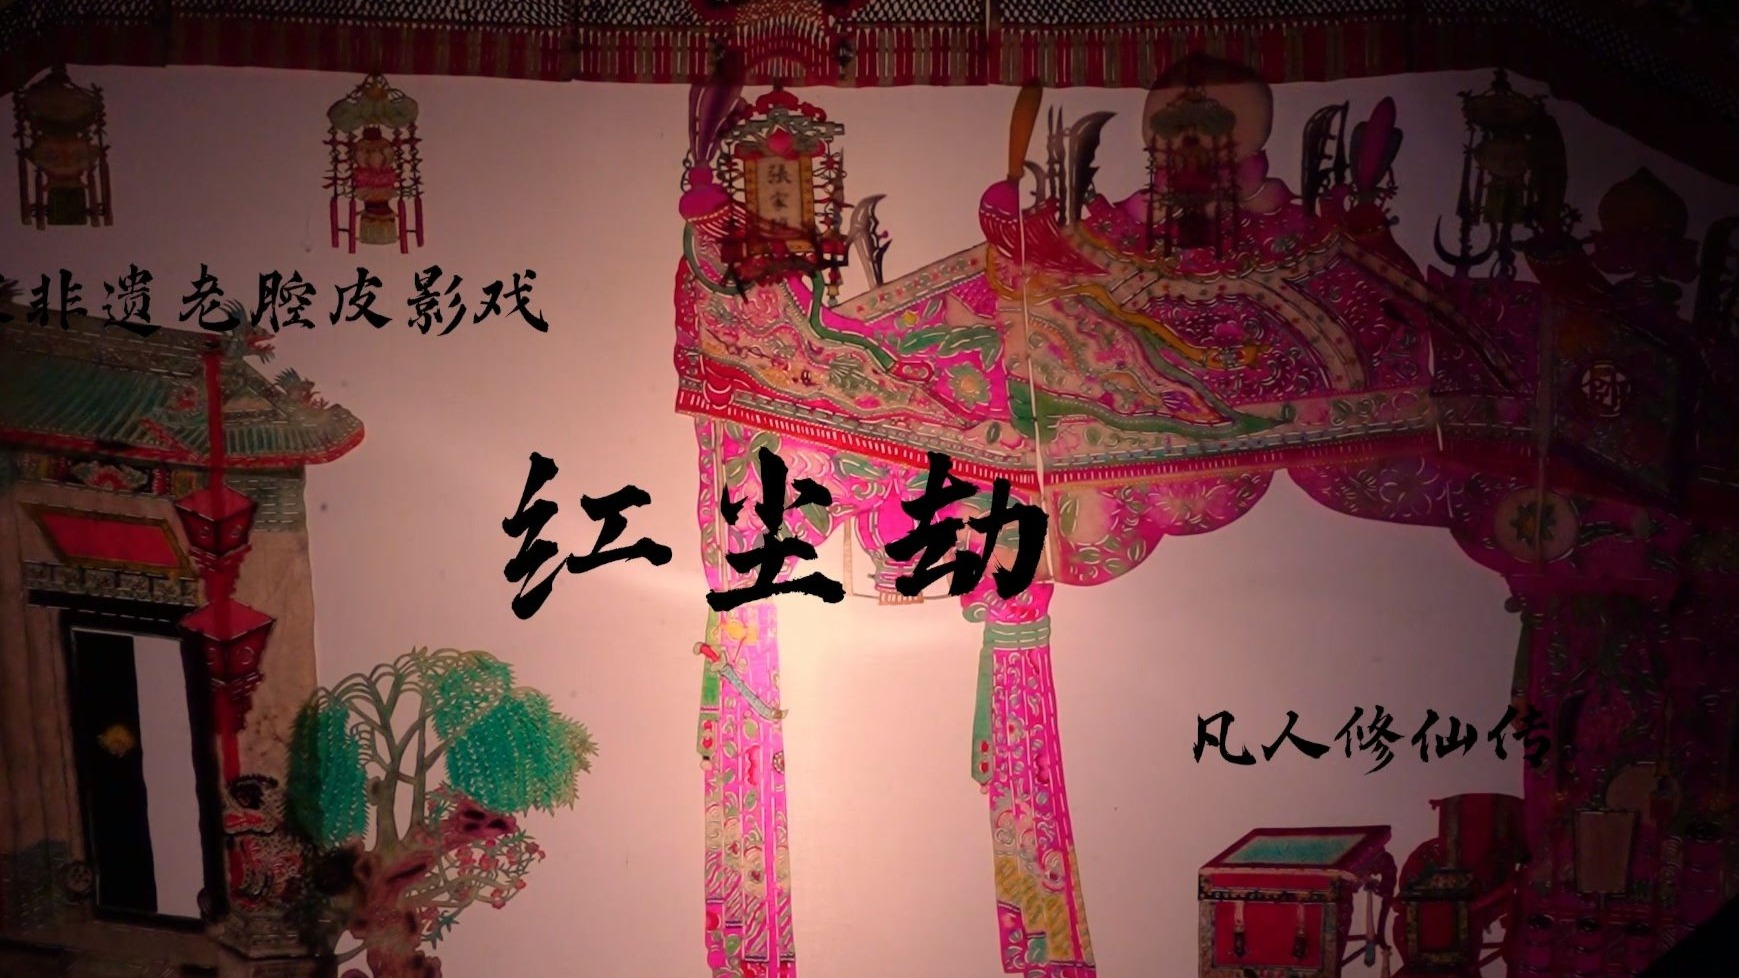 非遗老腔皮影戏
張家
红尘劫
凡人修仙传